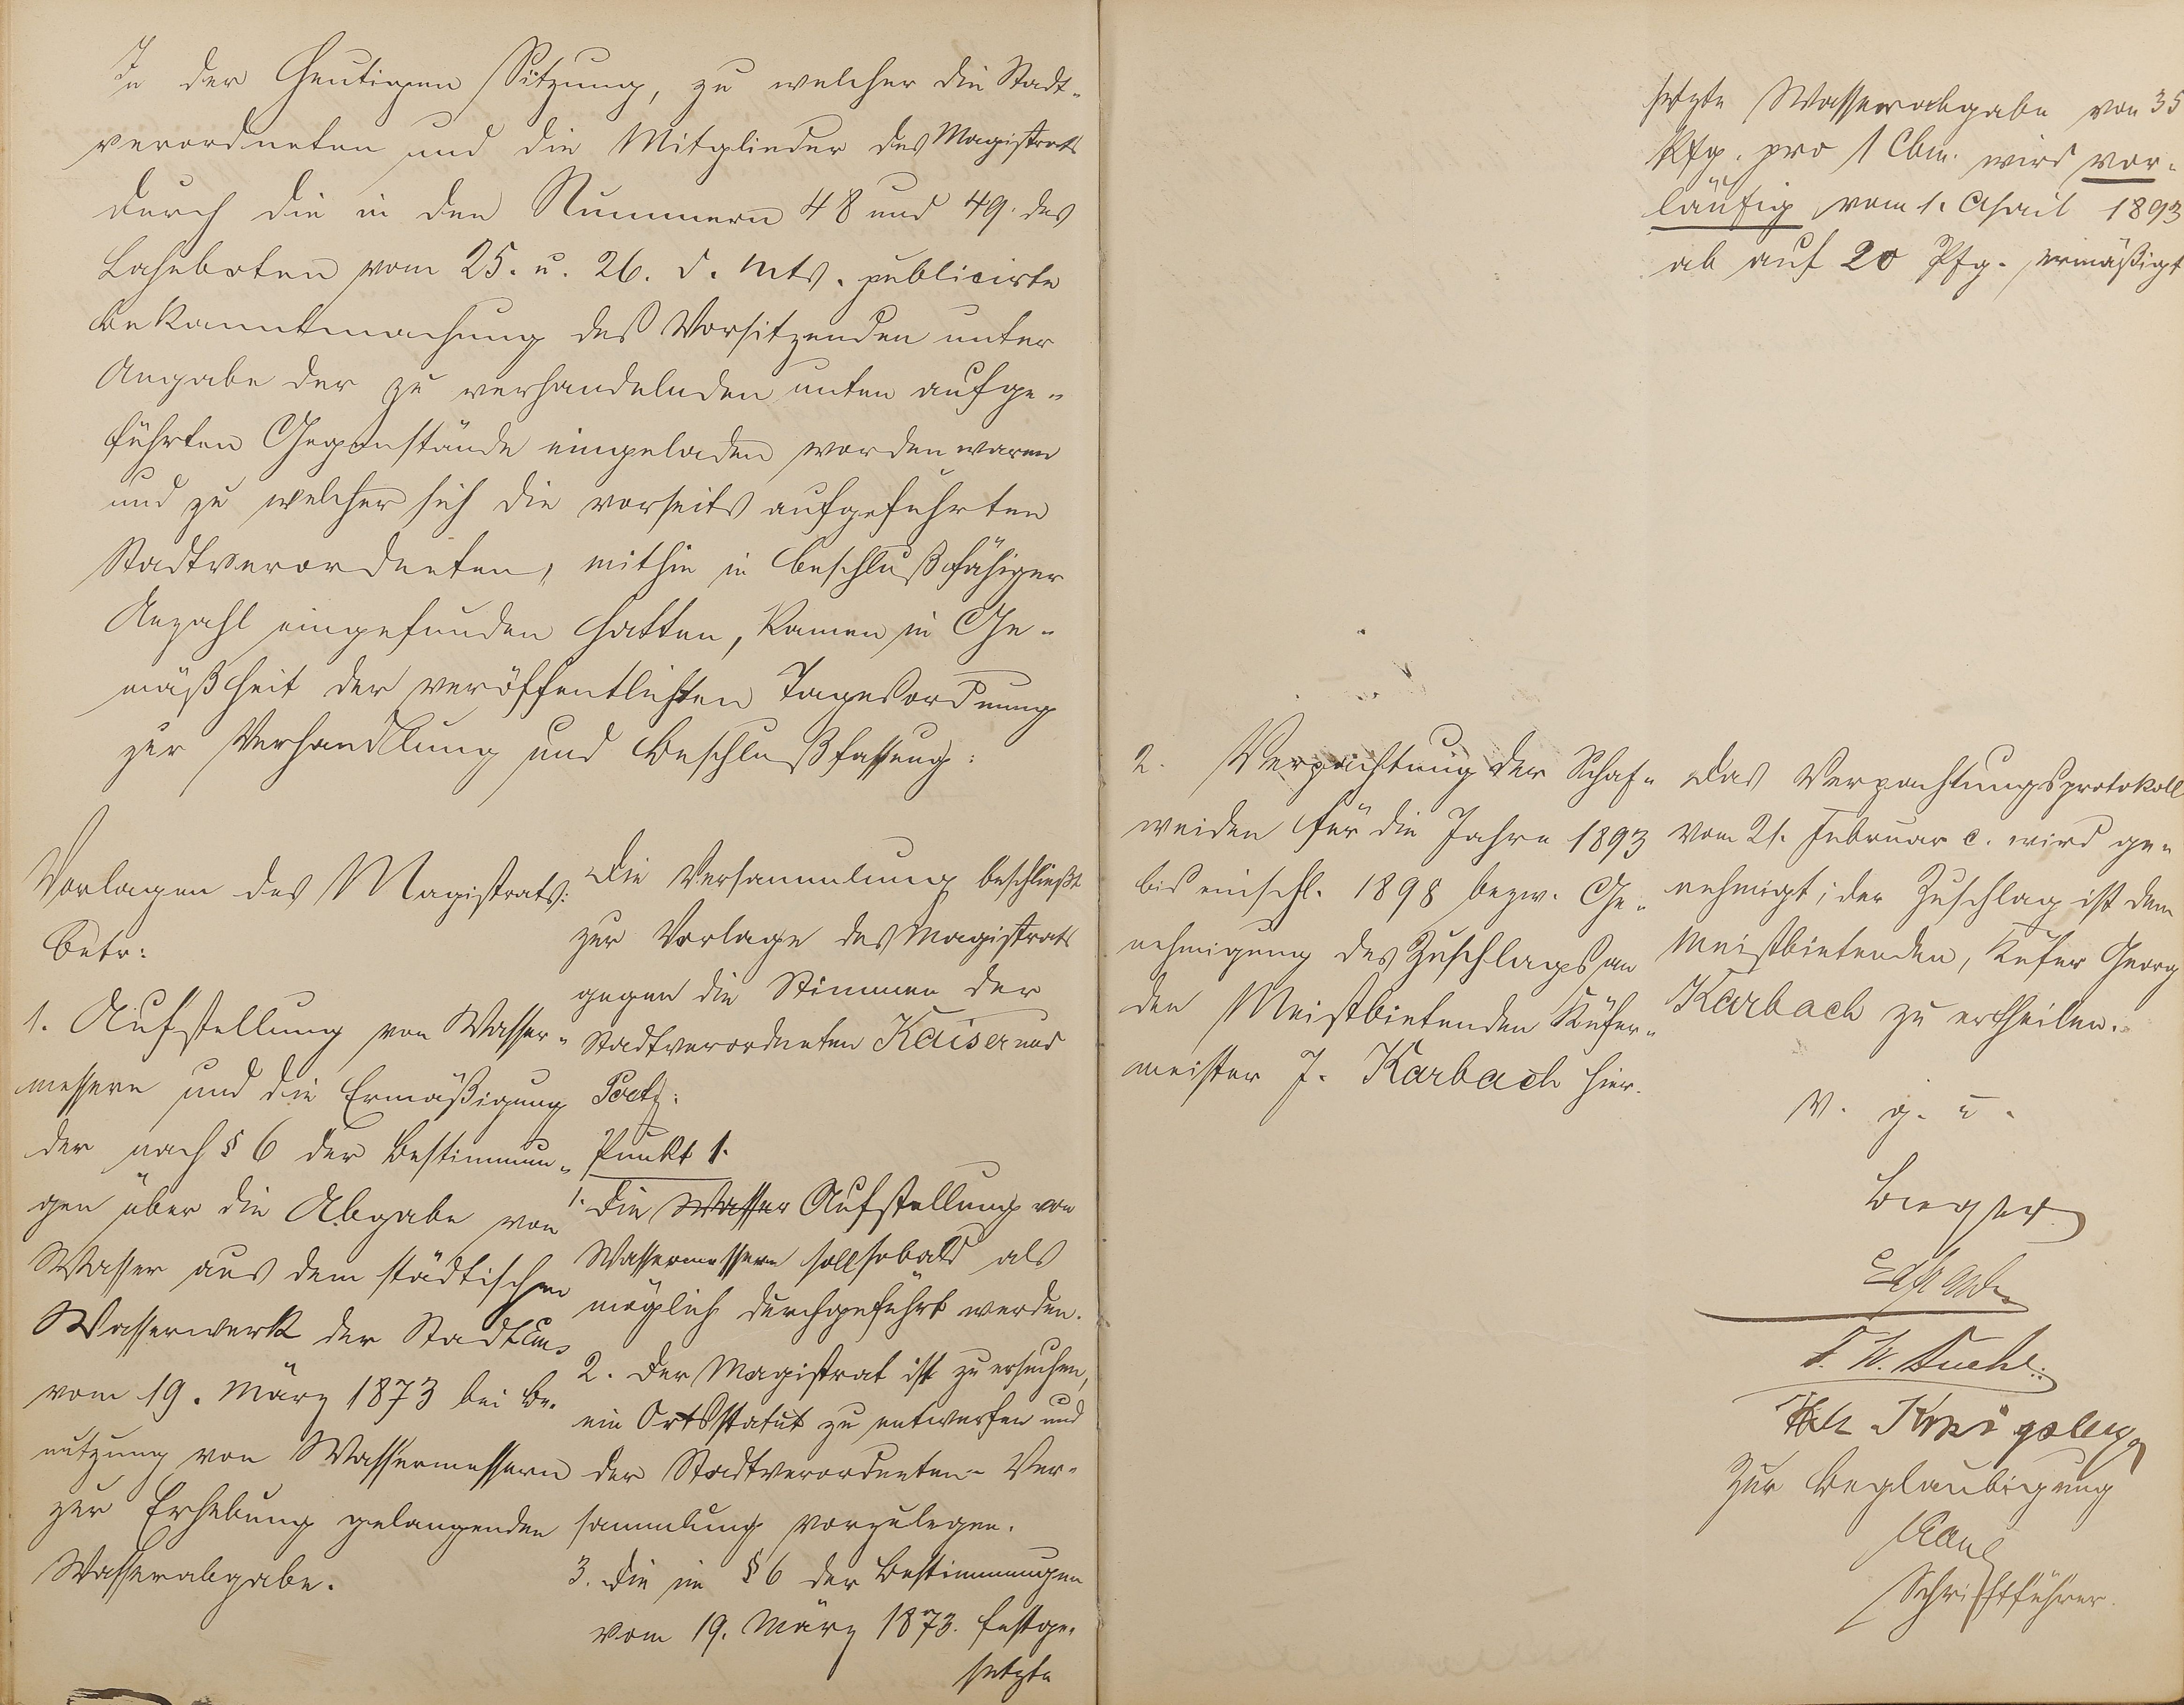 In der heutigen Sitzung, zu welcher die Stadt-
verordneten und die Mitglieder des Magistrats
durch die in den Nummern 48 und 49. des
Lahnboten vom 25. u. 26. d. Mts. publicirte
Bekanntmachung des Vorsitzenden unter
Angabe der zu verhandelnden unten aufge-
führten Gegenstände eingeladen worden waren
und zu welcher sich die vorseits aufgeführten
Stadtverordneten, mithin in beschlußfähiger
Anzahl eingefunden hatten, kamen in Ge-
mäßheit der veröffentlichten Tagesordnung
zur Verhandlung und Beschlußfassung:
Vorlagen des Magistrats:
betr:
1. Aufstellung von Wasser-
messern und die Ermäßigung
der nach § 6 der Bestimmun-
gen über die Abgabe von
Wasser aus dem städtischen
Wasserwerk der Stadt Ems
vom 19. März 1873 bei Be-
nutzung von Wassermessern
zur Erhebung gelangenden
Wasserabgabe.
Die Versammlung beschließt
zur Vorlage des Magistrats
gegen die Stimmen der
Stadtverordneten Kaiser und
Punkt 1.
1. Die Wasser Aufstellung von
Wassermessern soll sobald als
möglich durchgeführt werden.
2. Der Magistrat ist zu ersuchen,
ein Ortsstatut zu entwerfen und
der Stadtverordneten-Ver-
sammlung vorzulegen.
3. Die im § 6 der Bestimmungen
vom 19. März 1873. festge-
setzte
setzte Wasserabgabe von 35
Pfg. pro 1 Cbm. wird vor-
läufig vom 1. April 1893
ab auf 20 Pfg. ermäßigt
2. Verpachtung der Schaf-
weiden für die Jahre 1893
bis einschl. 1898 bezw. Ge-
nehmigung des Zuschlags an
den Meistbietenden Küfer-
meister J. Karbach hier.
Das Verpachtungsprotokoll
vom 21. Februar c. wird ge-
nehmigt; der Zuschlag ist dem
Meistbietenden, Küfer Georg
Karbach zu ertheilen.
V. g. u.
Zur Beglaubigung
Schriftführer.